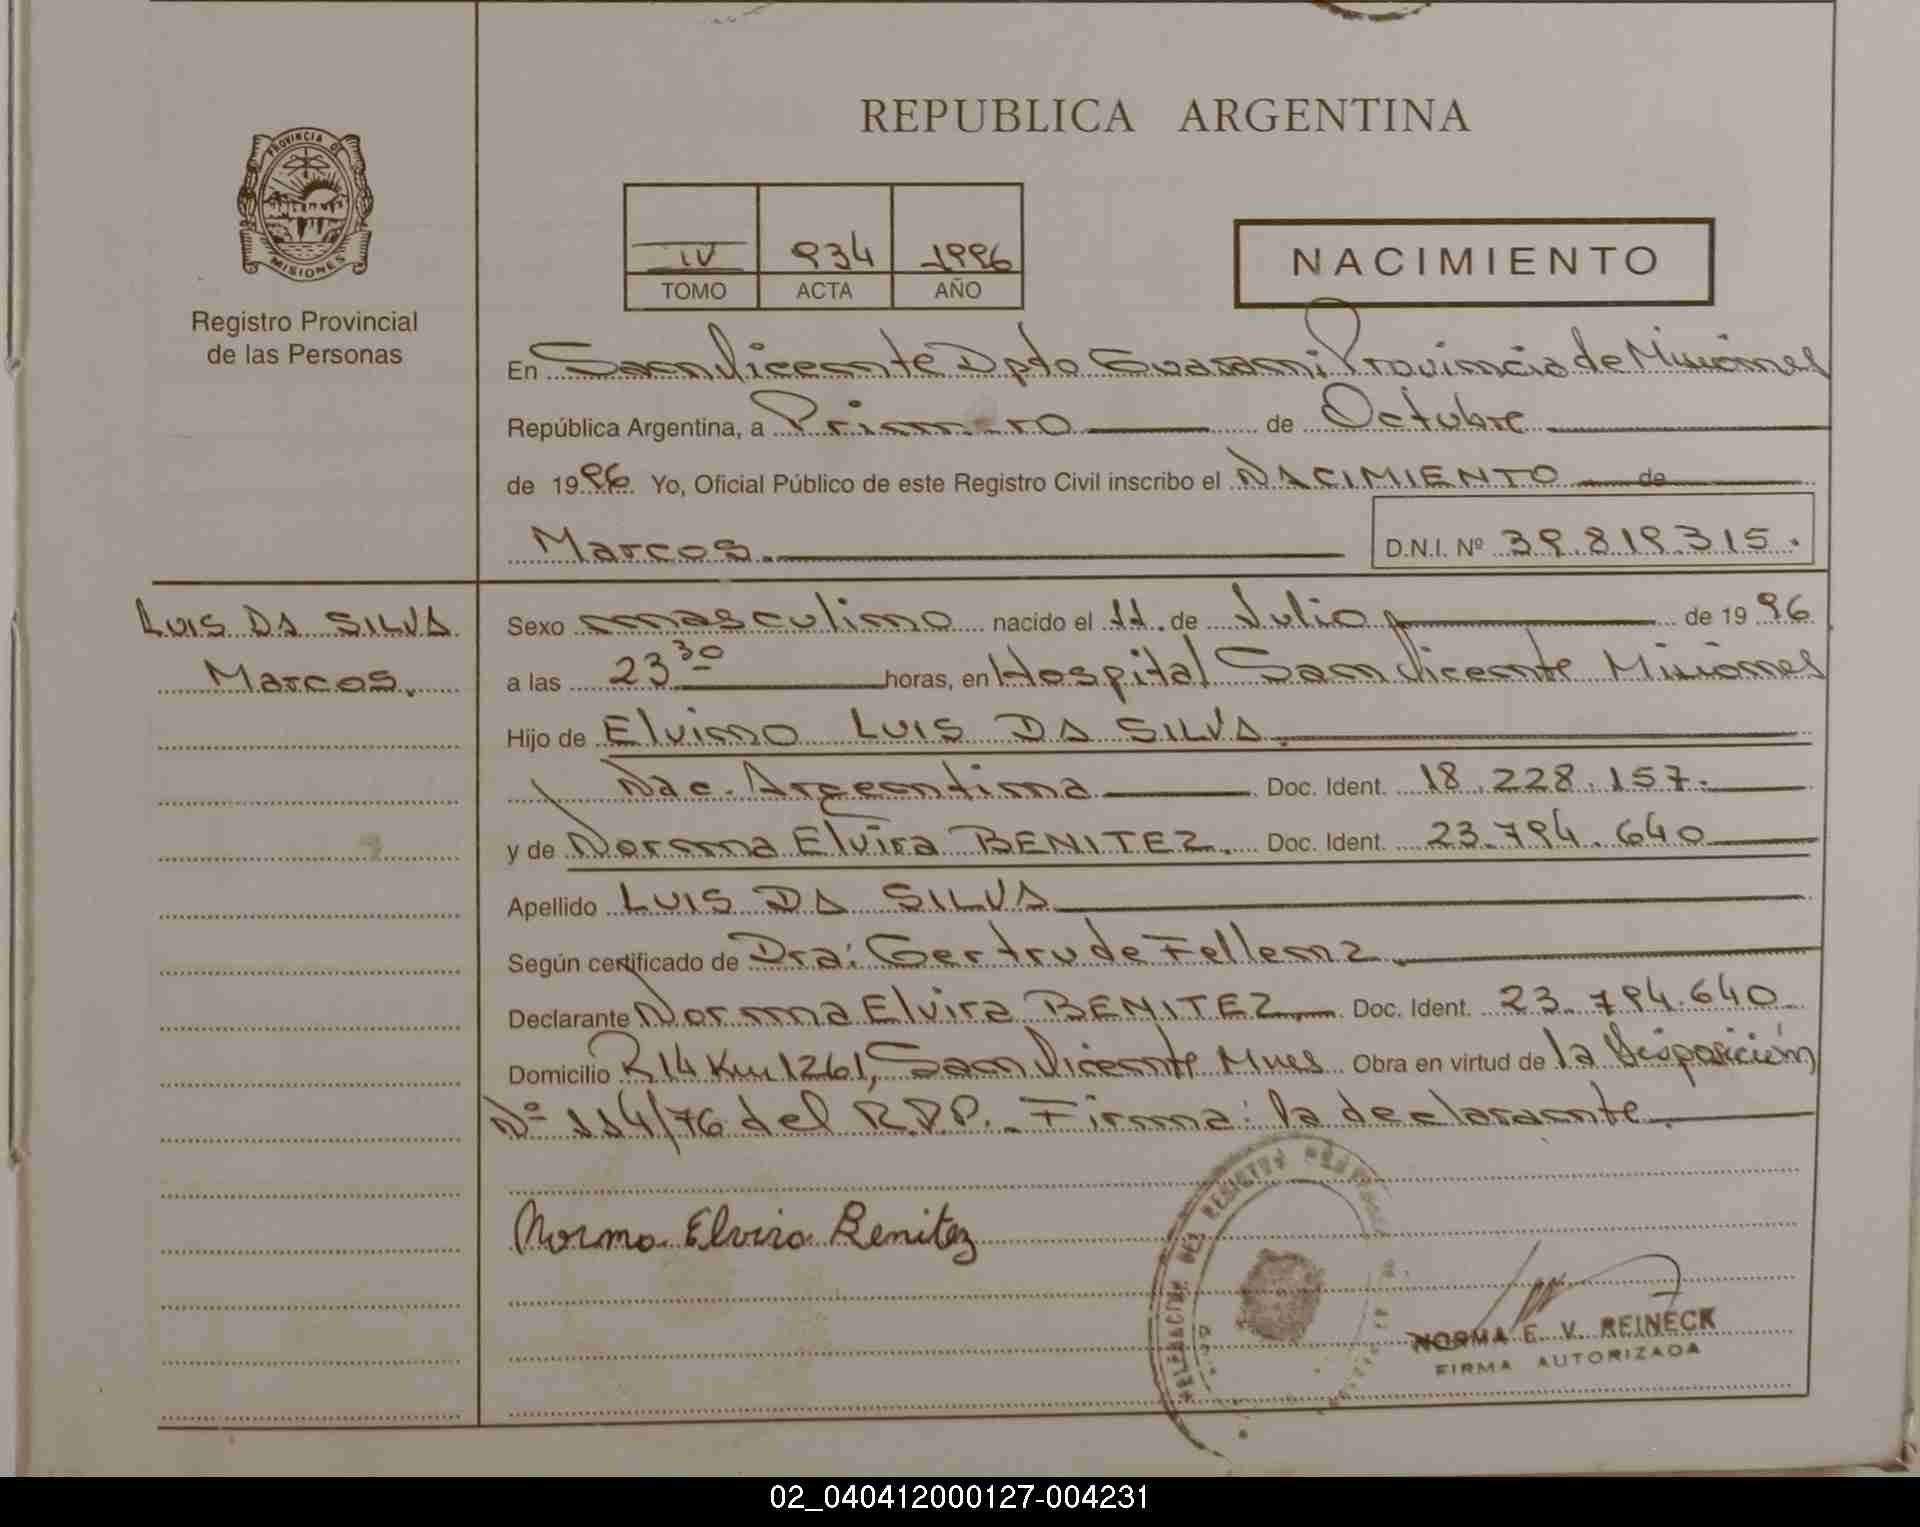 REPUBLICA ARGENTINA
PROVINCIA DE
MISIONES
Registro Provincial
de las Personas
IV 934 1996
TOMO ACTA AÑO
NACIMIENTO
En San Vicente Dpto Guarani Provincia de Misiones
República Argentina, a Primero de Octubre
de 1996. Yo, Oficial Público de este Registro Civil inscribo el NACIMIENTO de
Marcos. D.N.I. Nº 39.819.315.
LUIS DA SILVA
Marcos.
Sexo masculino nacido el 11. de Julio de 1996.
a las 23 30 horas, en Hospital San Vicente Misiones
Hijo de Elvino LUIS DA SILVA.
Nac. Argentina Doc. Ident. 18.228.157.
y de Norma Elvira BENITEZ. Doc. Ident. 23.794.640
Apellido LUIS DA SILVA
Según certificado de Dra: Gertrude Fellenz.
Declarante Norma Elvira BENITEZ. Doc. Ident. 23.794.640
Domicilio R 14 Km 1261, San Vicente Mnes Obra en virtud de la Disposición
Nº 114/76 del R.P.P. Firma: la declarante.
Norma Elvira Benitez
DELEGACION DEL REGISTRO
NORMA E. V. REINECK
FIRMA AUTORIZADA
02_040412000127-004231